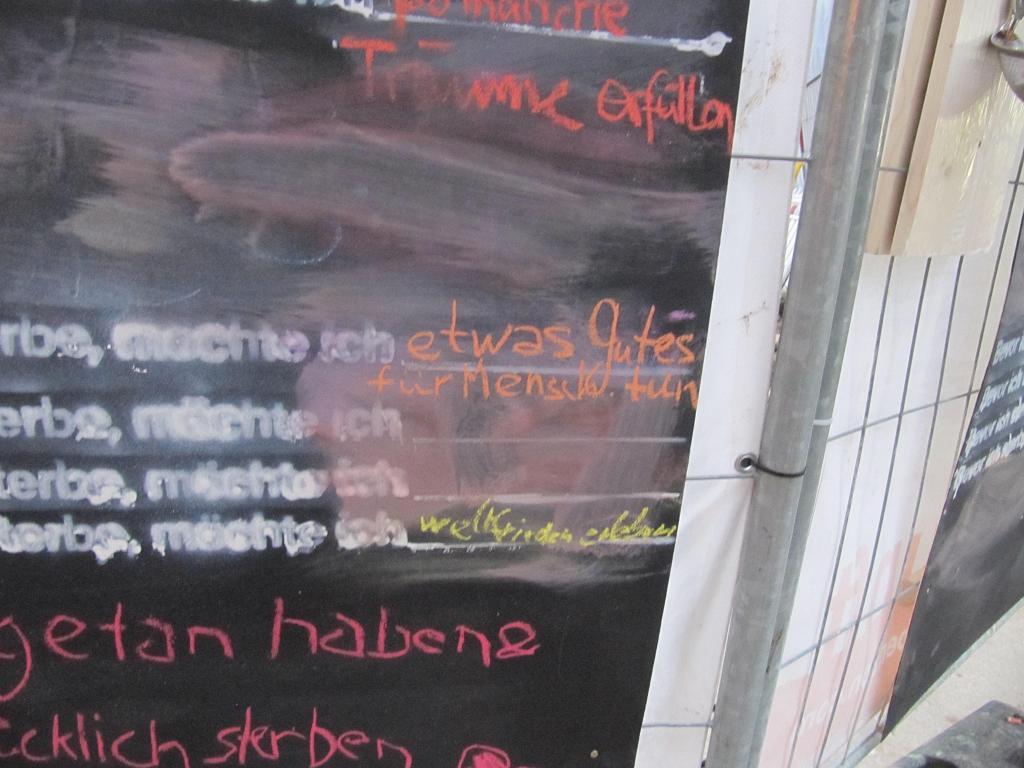 manche
Träume erfüllen
rbe, möchte ich etwas Gutes
für Mensch. tun
erbe, möchte ich
terbe, möchte ich
terbe, möchte ich weltfrieden erleben
getan haben &
ücklich sterben